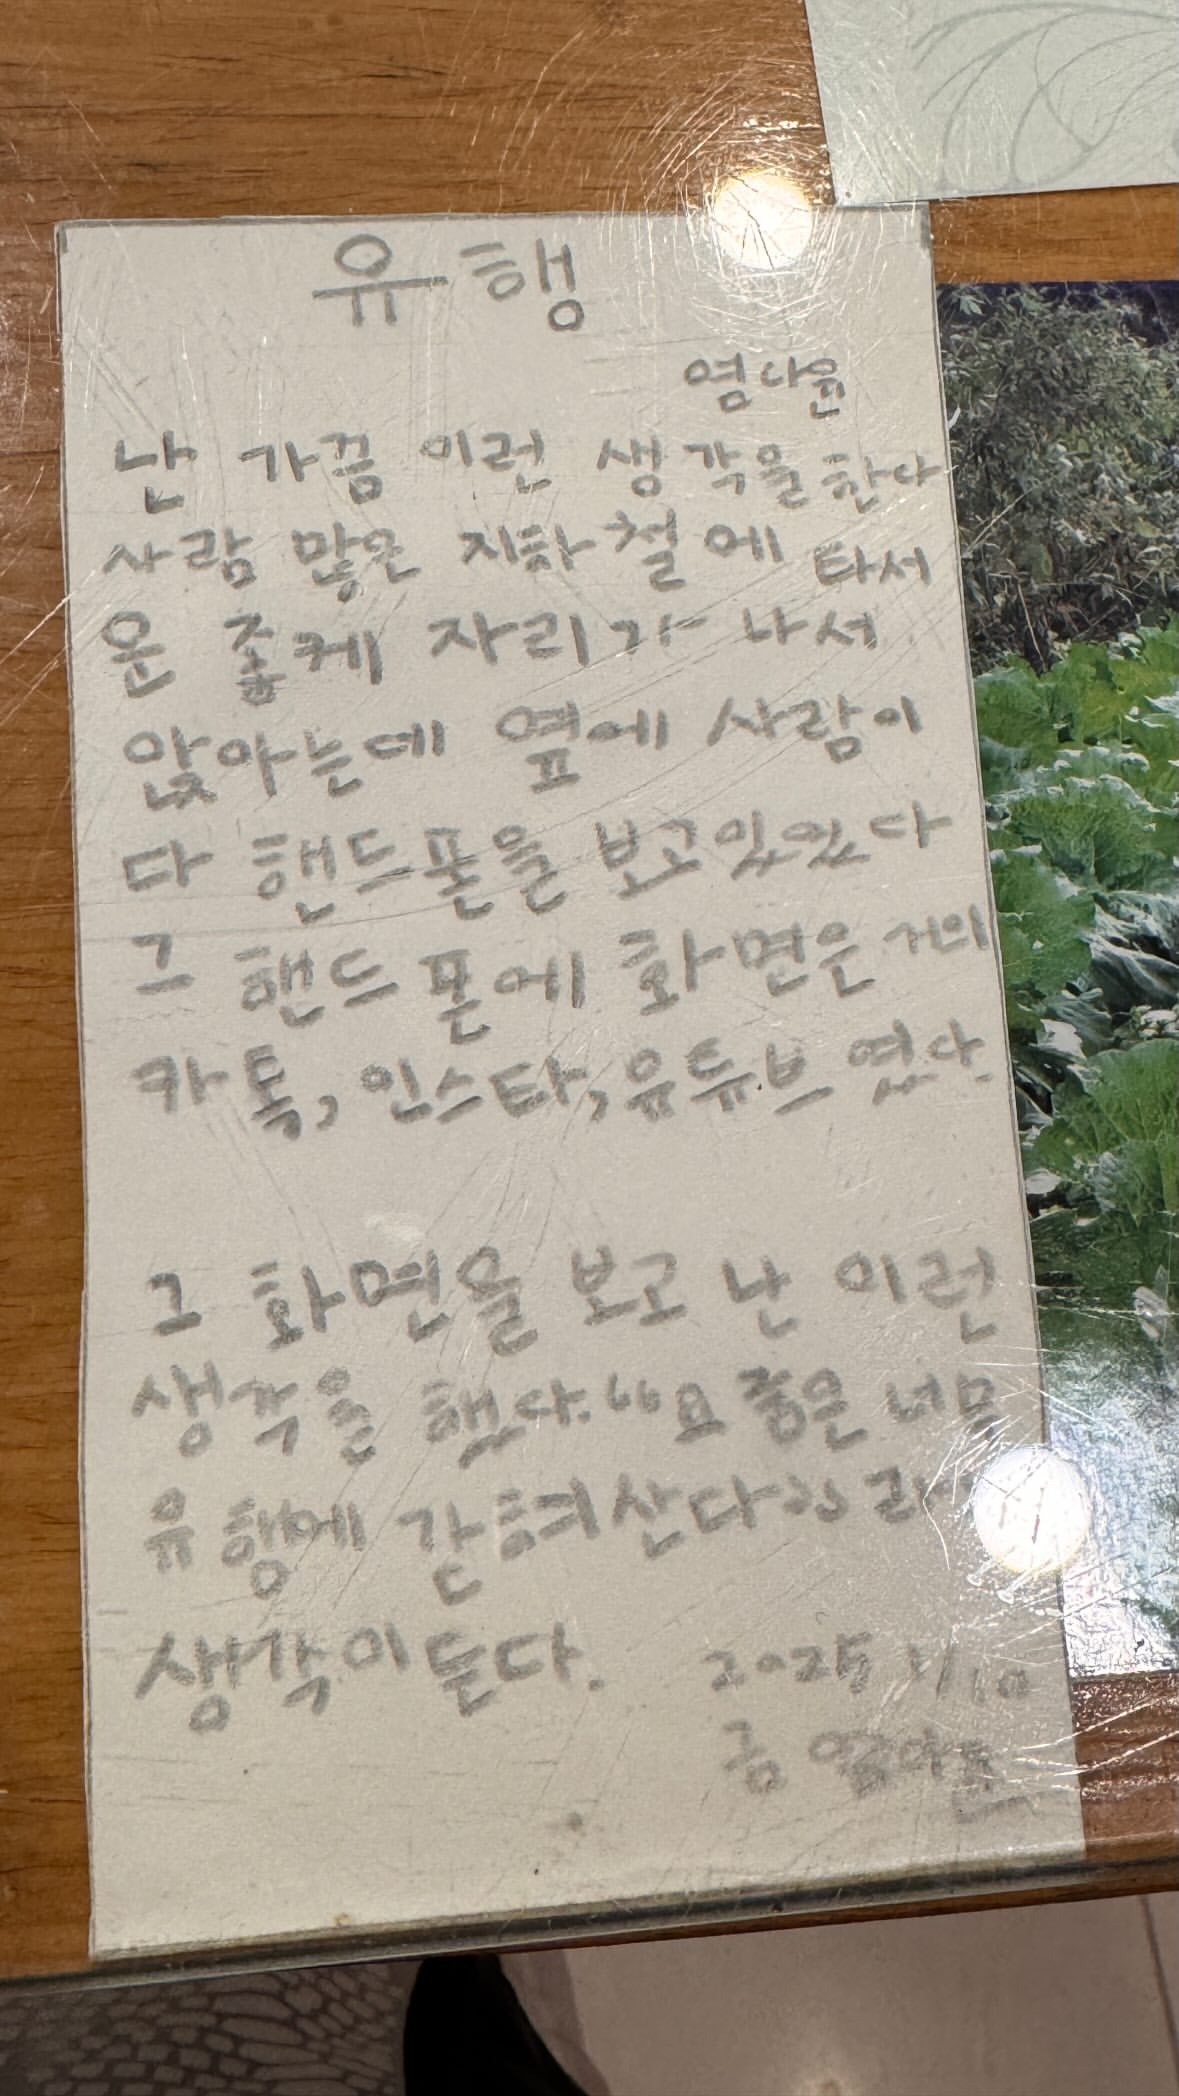 유행
염다윤
난 가끔 이런 생각을 한다
사람 많은 지하철에 타서
운 좋케 자리가 나서
앉아는데 옆에 사람이
다 핸드폰을 보고있었다
그 핸드폰에 화면은 거의
카톡, 인스타, 유튜브 였다.
그 화면을 보고 난 이런
생각을 했다. "요즘은 너무
유행에 갇혀산다" 라
생각이든다.
2025 1/10
금